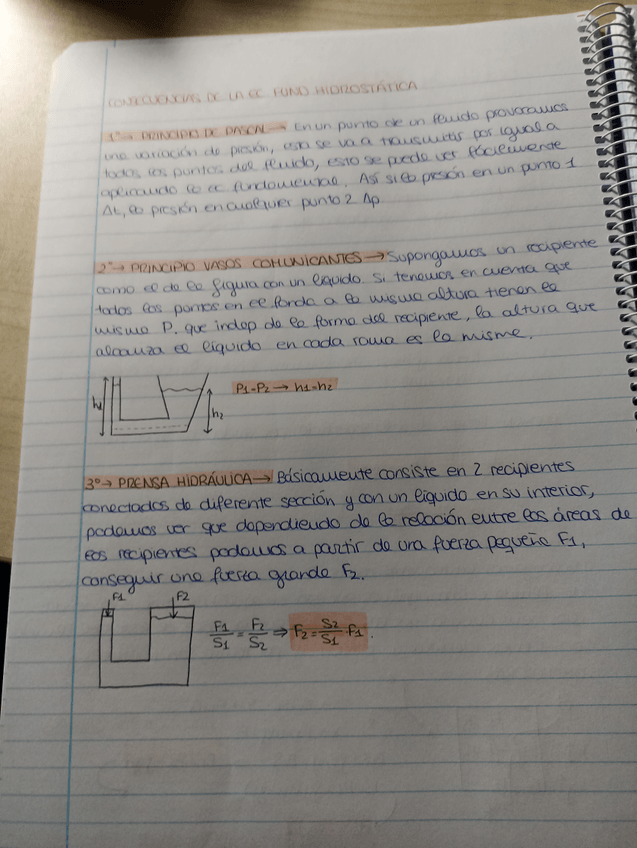 CONSECUENCIAS DE LA EC FUND HIDROSTÁTICA
1º→ PRINCIPIO DE PASCAL→ En un punto de un fluido provocamos
una variación de presión, esta se va a transmitir por igual a
todos los puntos del fluido, esto se puede ver fácilmente
aplicando la ec fundamental. Así si la presión en un punto 1
Δt, la presión en cualquier punto 2 Δp
2º→ PRINCIPIO VASOS COMUNICANTES→ Supongamos un recipiente
como el de la figura con un líquido. Si tenemos en cuenta que
todos los puntos en el fondo a la misma altura tienen la
misma P. que indep de la forma del recipiente, la altura que
alcanza el líquido en cada rama es la misma.
h1
P1=P2 → h1=h2
h2
3º→ PRENSA HIDRÁULICA→ Básicamente consiste en 2 recipientes
conectados de diferente sección y con un líquido en su interior,
podemos ver que dependiendo de la relación entre las áreas de
los recipientes podemos a partir de una fuerza pequeña F1,
conseguir una fuerza grande F2.
F1 F2
F1/S1 = F2/S2 ⇒ F2 = S2/S1 · F1.